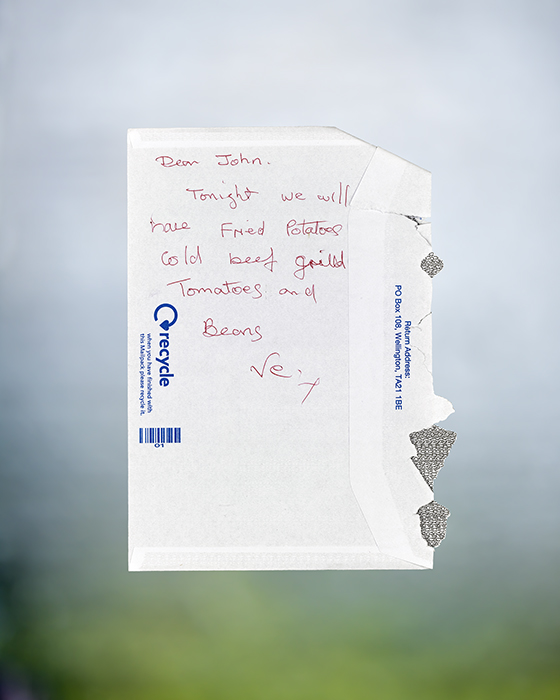 Dear John.
Tonight we will
have Fried Potatoes
Cold beef grilled
Tomatoes and
Beans
Ve. x
recycle
when you have finished with
this Mailpack please recycle it.
01
Return Address:
PO Box 108, Wellington, TA21 1BE